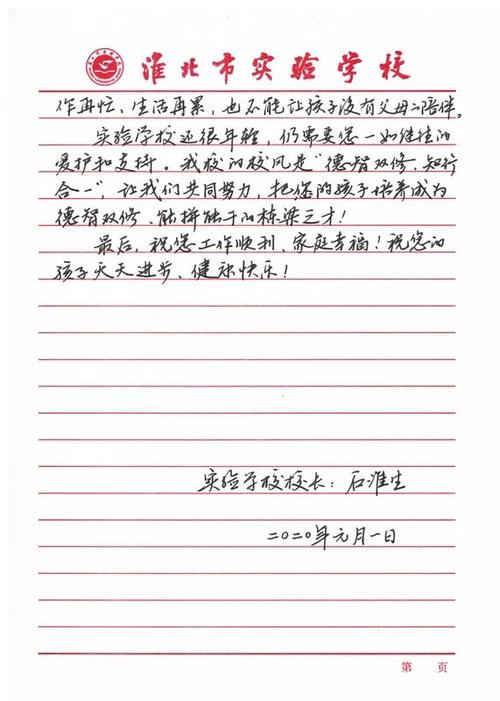 淮北市实验学校
作再忙、生活再累，也不能让孩子没有父母的陪伴。
实验学校还很年轻，仍需要您一如继往的
爱护和支持。我校的校风是“德智双修、知行
合一”，让我们共同努力，把您的孩子培养成为
德智双修、能拼能干的栋梁之才！
最后，祝您工作顺利、家庭幸福！祝您的
孩子天天进步、健康快乐！
实验学校校长：石淮生
二〇二〇年元月一日
第 页